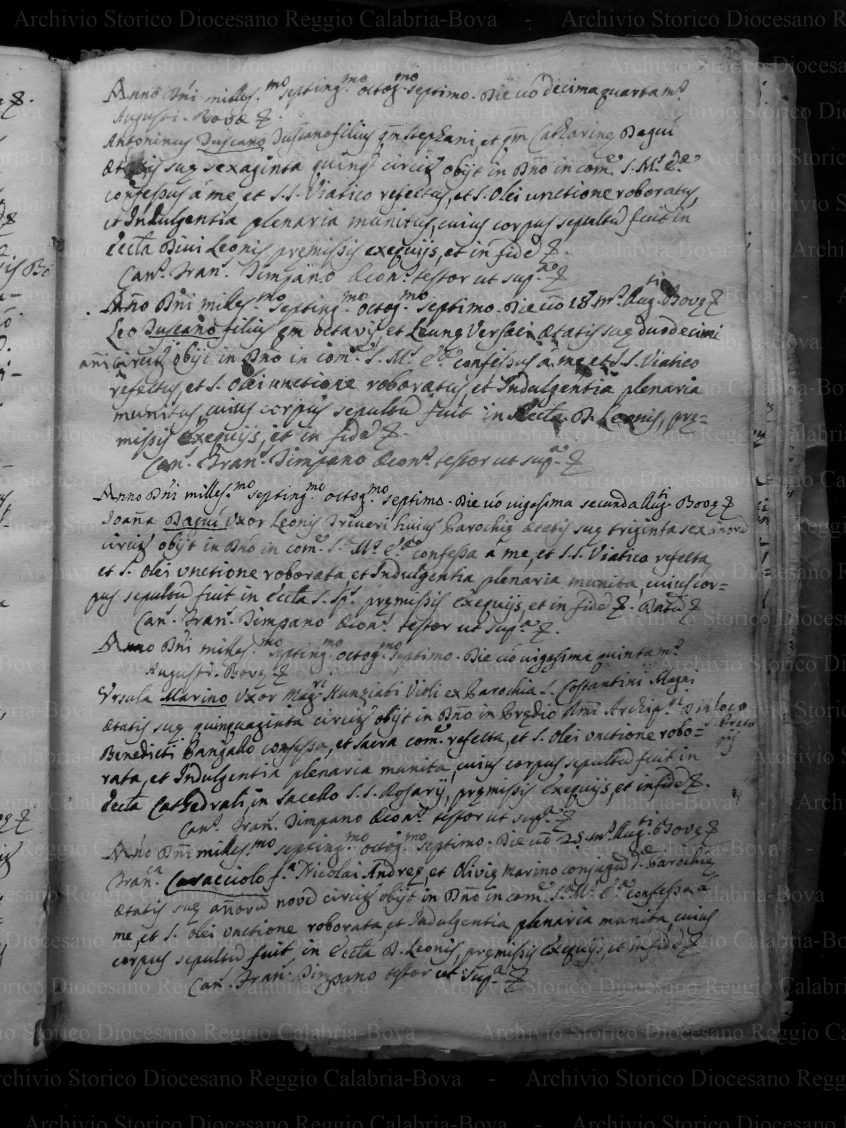 Anno Dñi milles.mo septing.mo octog.mo septimo. Die vó decimaquarta m.s
Augusti. Bovæ
Antoninus Tuscano Tuscano filius qm Stephani, et qm Catharinę Dagui
ætatis suę sexaginta quinq circiter obijt in Dño in com.e S. M. E.æ
confessus à me, et S.S. Viatico refectus, et S. Olei unctione roboratus
et Indulgentia plenaria munitus, cuius corpus sepultũ fuit in
Eccła Divi Leonis pręmissis exequijs, et in fide
Can.s Fran.s Timpano Æcon.s testor ut sup.a
Anno Dñi milles.mo septing.mo octog.mo septimo. Die vó 18 m.s Aug.ti Bovę
Leo Tuscano filius qm Octavij et Leung Versaci ætatis suę duodecimi
añi circiter obijt in Dño in com.e S. M. E.æ confessus à me, et S.S. Viatico
refectus, et S. Olei unctione roboratus, et Indulgentia plenaria
munitus, cuius corpus sepultũ fuit in Eccła D. Leonis, prę=
missis exequijs, et in fide
Can.s Fran.s Timpano Æcon.s testor ut sup.a
Anno Dñi milles.mo septing.mo octog.mo septimo. Die vó vigesima secunda Aug.ti Bovę
Joañna Dagui Uxor Leonis Triveri huius Parochię ætatis suę triginta sex anorũ
circiter obijt in Dño in com.e S. M. E.æ confessa à me, et S.S. Viatico refecta
et S. Olei unctione roborata, et Indulgentia plenaria munita, cuius cor=
pus sepultũ fuit in Eccła S. Sp. pręmissis exequijs, et in fide
Can.s Fran.s Timpano Æcon.s testor ut sup.a
Anno Dñi milles.mo septing.mo octog.mo septimo. Die vó vigesima quinta m.s
Augusti. Bovę
Ursula Marino Uxor Mag.ri Nunziati Violi ex Parochia S. Costantini
ætatis suę quinquaginta circiter obijt in Dño in Prędio Archip. in loco
Benedicti Pangallo confessa, et sacra com.e refecta, et S. Olei unctione robo=
rata, et Indulgentia plenaria munita, cuius corpus sepultũ fuit in
Eccła Cathedrali, in Sacello S.S. Rosarij, pręmissis exequijs, et in fide
Can.s Fran.s Timpano Æcon.s testor ut sup.a
Anno Dñi milles.mo septing.mo octog.mo septimo. Die vó 29 m.s Aug.ti Bovę
Fran.ca Caracciolo f.a Nicolai Andreę, et Olivię Marino conjugũ Parochię
ætatis suę añorũ novẽ circiter obijt in Dño in com.e S. M. E.æ confessa à
me, et S. Olei unctione roborata et Indulgentia plenaria munita, cuius
corpus sepultũ fuit in Eccła D. Leonis, pręmissis exequijs, et in fide
Can.s Fran.s Timpano testor ut sup.a
Archivio Storico Diocesano Reggio Calabria-Bova